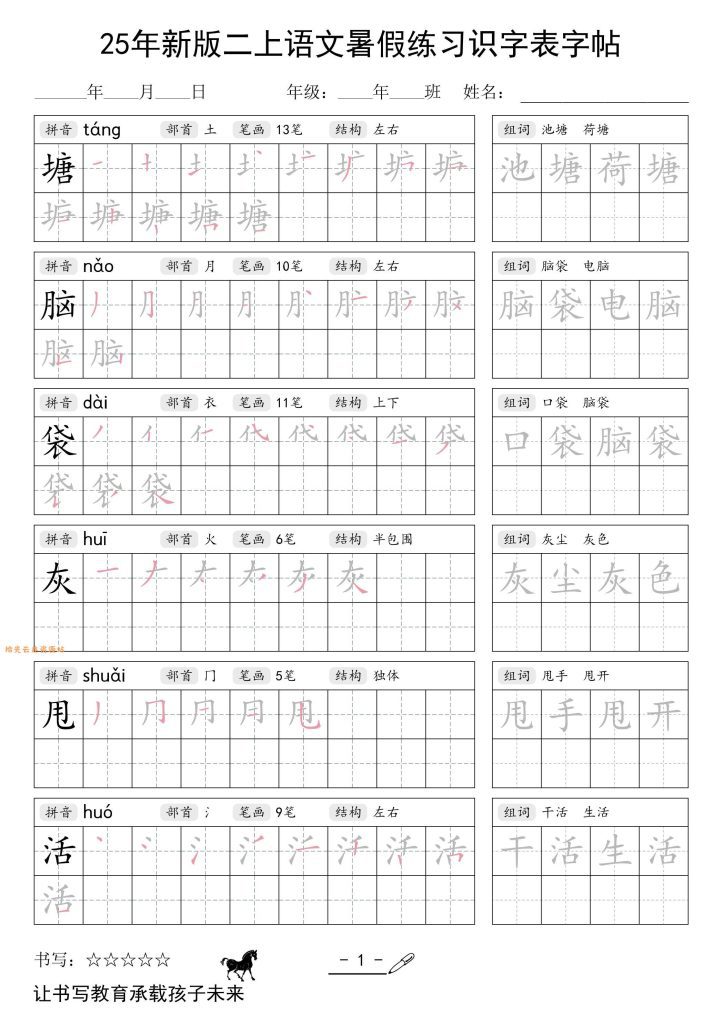 25年新版二上语文暑假练习识字表字帖
______年____月____日 年级：____年____班 姓名：____________________
拼音 táng 部首 土 笔画 13笔 结构 左右
组词 池塘 荷塘
塘
池塘荷塘
塘
拼音 nǎo 部首 月 笔画 10笔 结构 左右
组词 脑袋 电脑
脑
脑袋电脑
脑
拼音 dài 部首 衣 笔画 11笔 结构 上下
组词 口袋 脑袋
袋
口袋脑袋
袋
拼音 huī 部首 火 笔画 6笔 结构 半包围
组词 灰尘 灰色
灰 灰
灰尘灰色
拼音 shuǎi 部首 冂 笔画 5笔 结构 独体
组词 甩手 甩开
甩 甩
甩手甩开
拼音 huó 部首 氵 笔画 9笔 结构 左右
组词 干活 生活
活
干活生活
活
书写：☆☆☆☆☆
- 1 -
让书写教育承载孩子未来